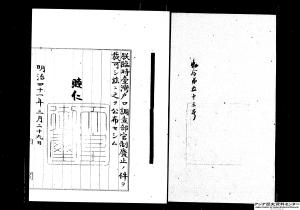 勅令第五十三号
朕臨時臺灣戸口調査部官制廢止ノ件ヲ
裁可シ茲ニ之ヲ公布セシム
睦仁
明治四十一年三月二十九日
アジア歴史資料センター